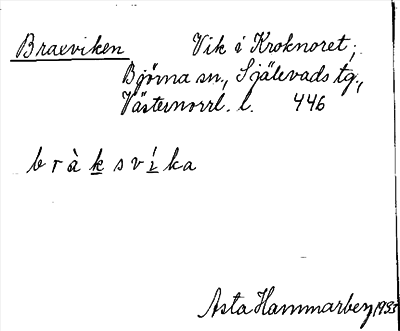 Braxviken Vik i Kroknoret,
Björna sn., Själevads tg.,
Västernorrl. l. 446
b r à k s v í k a
Asta Hammarberg 1933